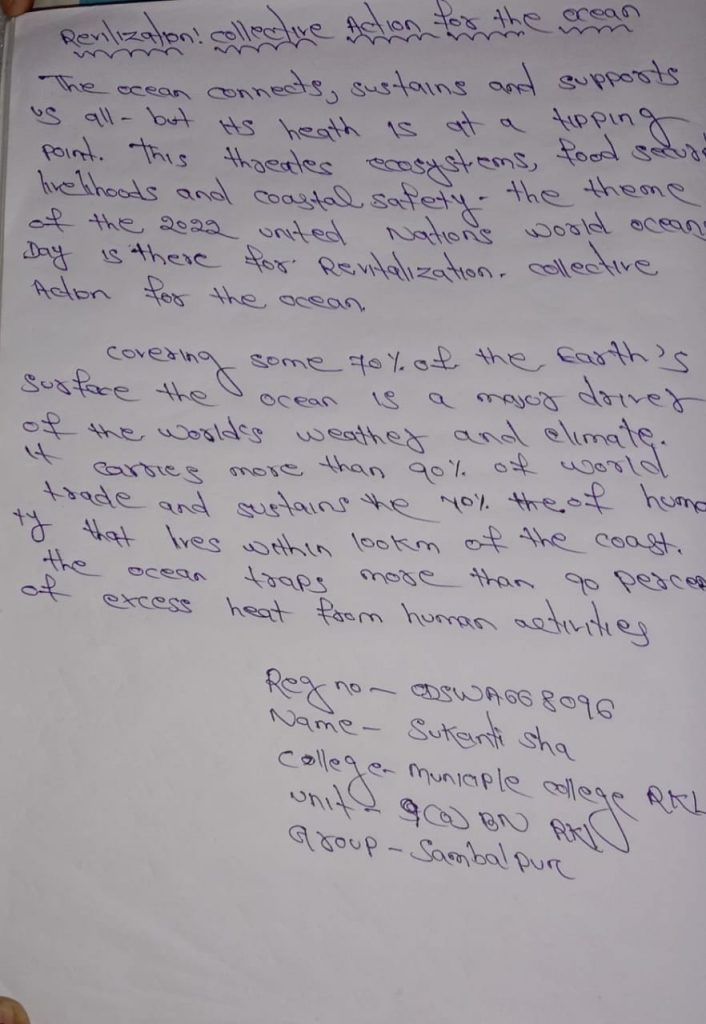 Revilization! collective Action for the ocean
The ocean connects, sustains and supports
us all - but its heath is at a tipping
point. This threates ecosystems, food secur
livelihoods and coastal safety - the theme
of the 2022 united Nations world ocean
Day is there for Revitalization. collective
Action for the ocean.
covering some 70% of the Earth's
surface the ocean is a major driver
of the world's weather and climate.
it carries more than 90% of world
trade and sustains the 40% the of huma
ty that lives within 100km of the coast.
the ocean traps more than 90 percen
of excess heat from human activities
Reg no - ODSWA668096
Name - Sukanti sha
college - municiple college RKL
unit - 9(O) BN RKL
Group - Sambalpur